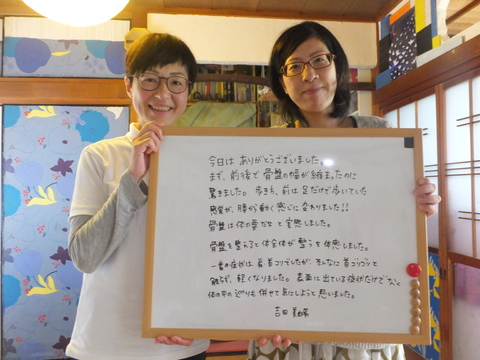 今日は ありがとうございました。
まず、前後で骨盤の幅が縮まったのに
驚きました。歩きも、前は足だけで歩いていた
感覚が、腰から動く感じに変わりました!!
骨盤は体の要だなと実感しました。
骨盤を整えると体全体が整うを体感しました。
一番の症状は肩首コリでしたが、そんなに首ゴリゴリと
触らず、軽くなりました。表面に出ている症状だけでなく
体の中の巡りも併せて気にしようと思いました。
吉田